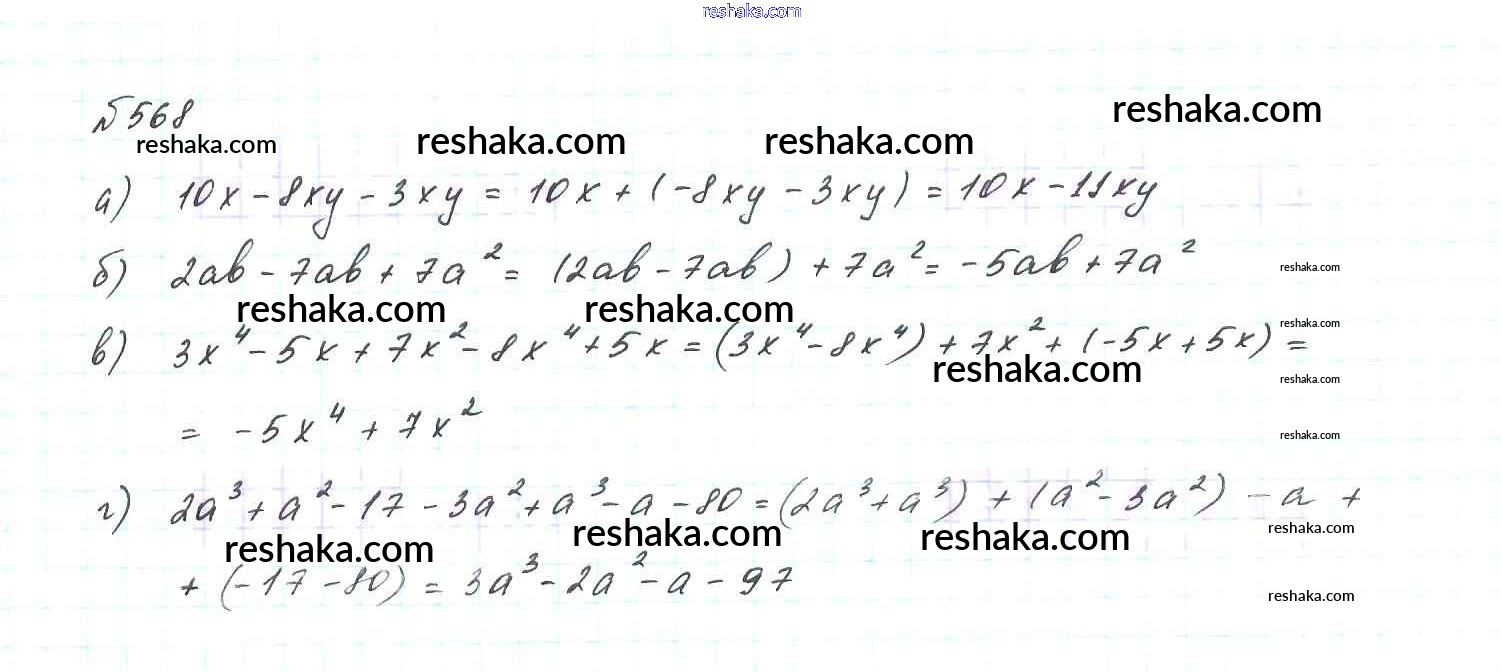 reshaka.com
№568
reshaka.com
reshaka.com reshaka.com reshaka.com
а) 10x - 8xy - 3xy = 10x + (-8xy - 3xy) = 10x - 11xy
б) 2ab - 7ab + 7a² = (2ab - 7ab) + 7a² = -5ab + 7a²
reshaka.com
reshaka.com reshaka.com reshaka.com
в) 3x⁴ - 5x + 7x² - 8x⁴ + 5x = (3x⁴ - 8x⁴) + 7x² + (-5x + 5x) =
reshaka.com reshaka.com
= -5x⁴ + 7x²
reshaka.com
г) 2a³ + a² - 17 - 3a² + a³ - a - 80 = (2a³ + a³) + (a² - 3a²) - a +
reshaka.com reshaka.com reshaka.com reshaka.com
+ (-17 - 80) = 3a³ - 2a² - a - 97
reshaka.com